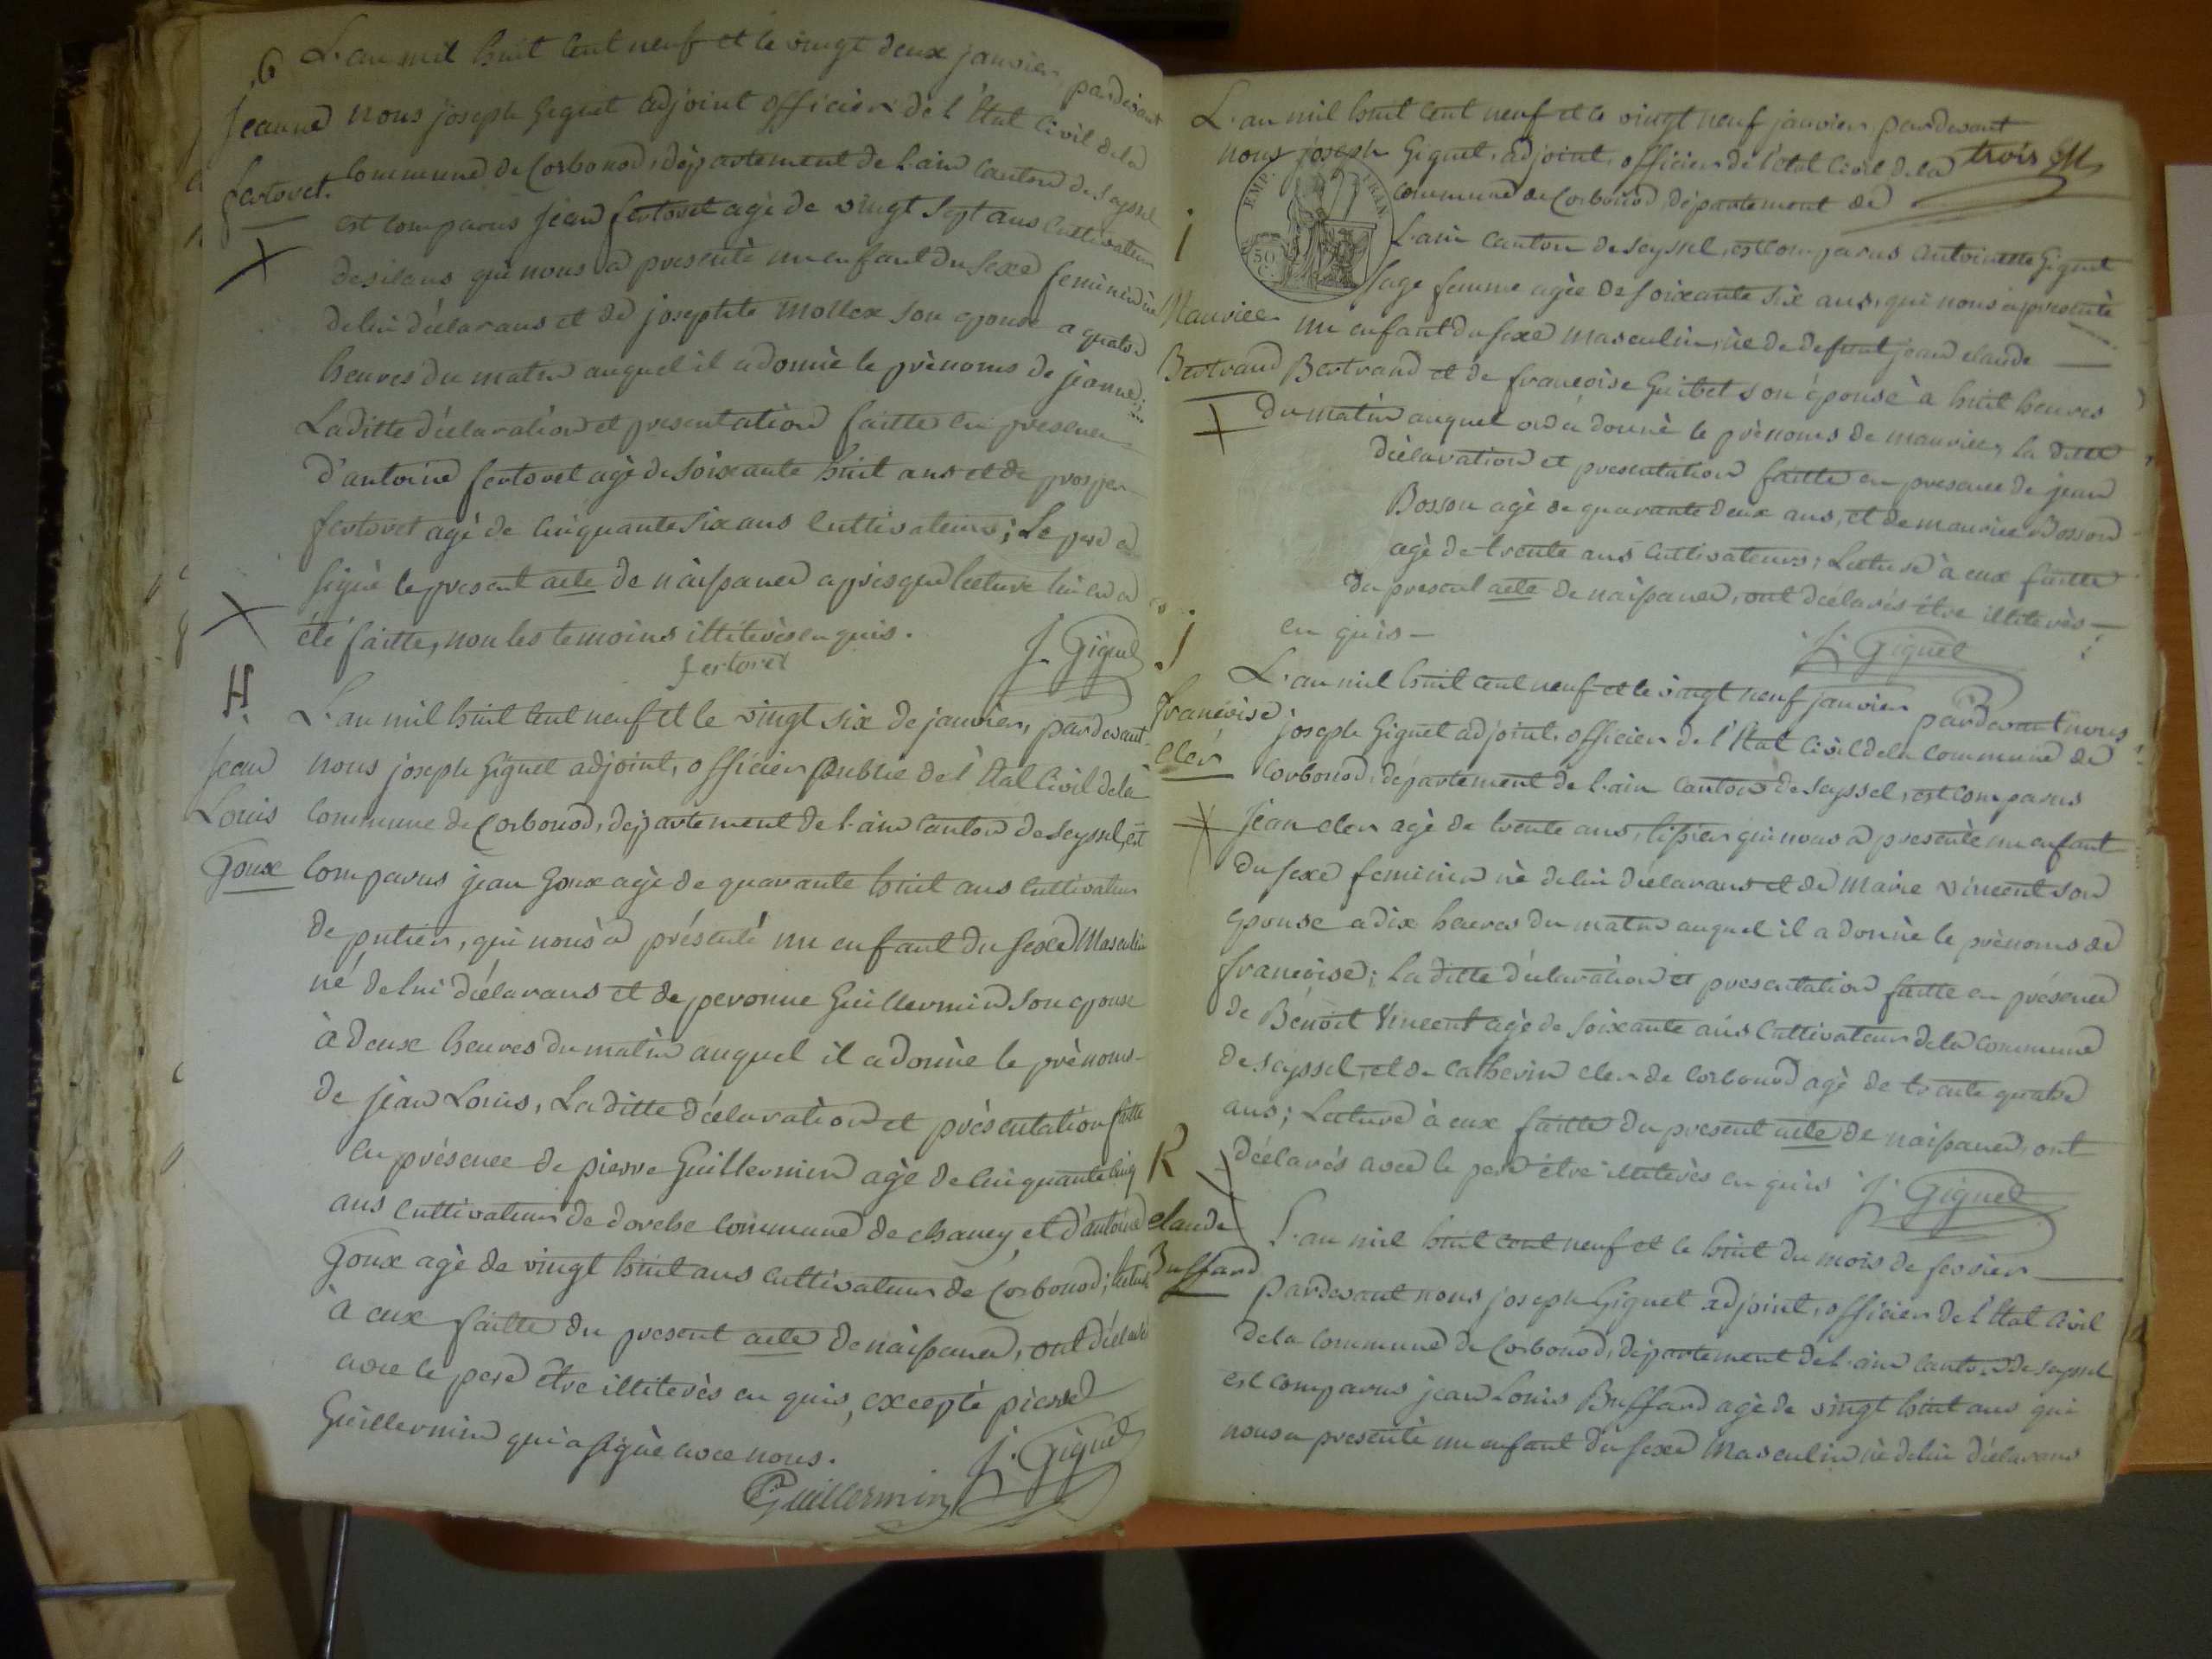 G
Jeanne
fertoret.
L'an mil huit cent neuf et le vingt deux janvier pardevant
nous joseph Giguet adjoint officier de l'Etat Civil dela
Commune de Corbonod, département de l'ain Canton de Seyssel
est comparus Jean fertoret agè de vingt sept ans Cultivateur
desilans qui nous a presentè un enfant du sexe feminin nè
delui dèclarans et de josephte mollex son èpouse a quatre
heures du matin auquel il a donnè le prènoms de jeanne;
Laditte dèclaration et presentation faitte en presence
d'antoine fertoret agè de soixante huit ans et de prosper
fertoret agè de cinquante six ans Cultivateurs; Le pere a
signè le present acte de naissance après que lecture lui en a
étè faitte, non les temoins illiterès enquis.
fertoret J. Giguet
H.
Jean
Louis
Goux
L'an mil huit cent neuf et le vingt six de janvier, pardevant
nous joseph Giguet adjoint, officier public de l'Etat Civil dela
Commune de Corbonod, département de l'ain Canton de Seyssel, est
comparus jean Goux agè de quarante huit ans Cultivateur
de putier, qui nous a présenté un enfant du sexe Masculin
né delui dèclarans et de peronne Guillermin son epouse
à deux heures du matin auquel il a donnè le prènoms
de jean Louis, La ditte dèclaration et prèsentation faitte
en présence de pierre Guillermin agè de cinquante cinq
ans cultivateur de dorche commune de chanay et d'antoine
Goux agè de vingt huit ans cultivateur de Corbonod; lecture
à eux faitte du present acte de naissance, ont dèclarès
avec le pere être illiterès en quis, exceptè pierre
Guillermin qui a signè avec nous.
PGuillermin J. Giguet
trois
i
Maurice
Bertrand
L'an mil huit cent neuf et le vingt neuf janvier pardevant
nous joseph Giguet, adjoint, officier de l'état Civil dela
EMP. FRAN.
50 C.
commune de Corbonod, département de
L'ain Canton de Seyssel, est comparus Antoinette Giguet
sage femme agèe de soixante six ans, qui nous a presentè
un enfant du sexe masculin, nè de defunt jean claude
Bertrand et de françoise Guibet son épouse à huit heures
du matin auquel on a donnè le prènoms de maurice, la ditte
dèclaration et presentation faitte en presence de jean
Bosson agè de quarante deux ans, et de maurice Bosson
agè de trente ans Cultivateurs; Lecture à eux faitte
du present acte de naissance, ont dèclarès être illiterès
en quis
J. Giguet
J
françoise
cler
L'an mil huit cent neuf et le vingt neuf janvier pardevant nous
joseph Giguet adjoint, officier de l'Etat Civil dela Commune de
Corbonod, département de l'ain Canton de Seyssel, est comparus
Jean cler agè de trente ans, tissier qui nous a presentè un enfant
du sexe feminin nè delui dèclarans et de marie vincent son
epouse a dix heures du matin auquel il a donnè le prènoms de
françoise; La ditte dèclaration et presentation faitte en présence
de Bénoit Vincent agè de soixante ans Cultivateur dela Commune
de Seyssel, et de catherin cler de Corbonod agè de trente quatre
ans; Lecture à eux faitte du present acte de naissance, ont
dèclarès avec le pere être illiterès en quis J. Giguet
K
claude
Buffard
L'an mil huit cent neuf et le huit du mois de fevrier
pardevant nous joseph Giguet adjoint, officier de l'Etat Civil
dela Commune de Corbonod, département de l'ain Canton de Seyssel
est comparus jean Louis Buffard agè de vingt huit ans qui
nous a presentè un enfant du sexe Masculin nè delui dèclarans